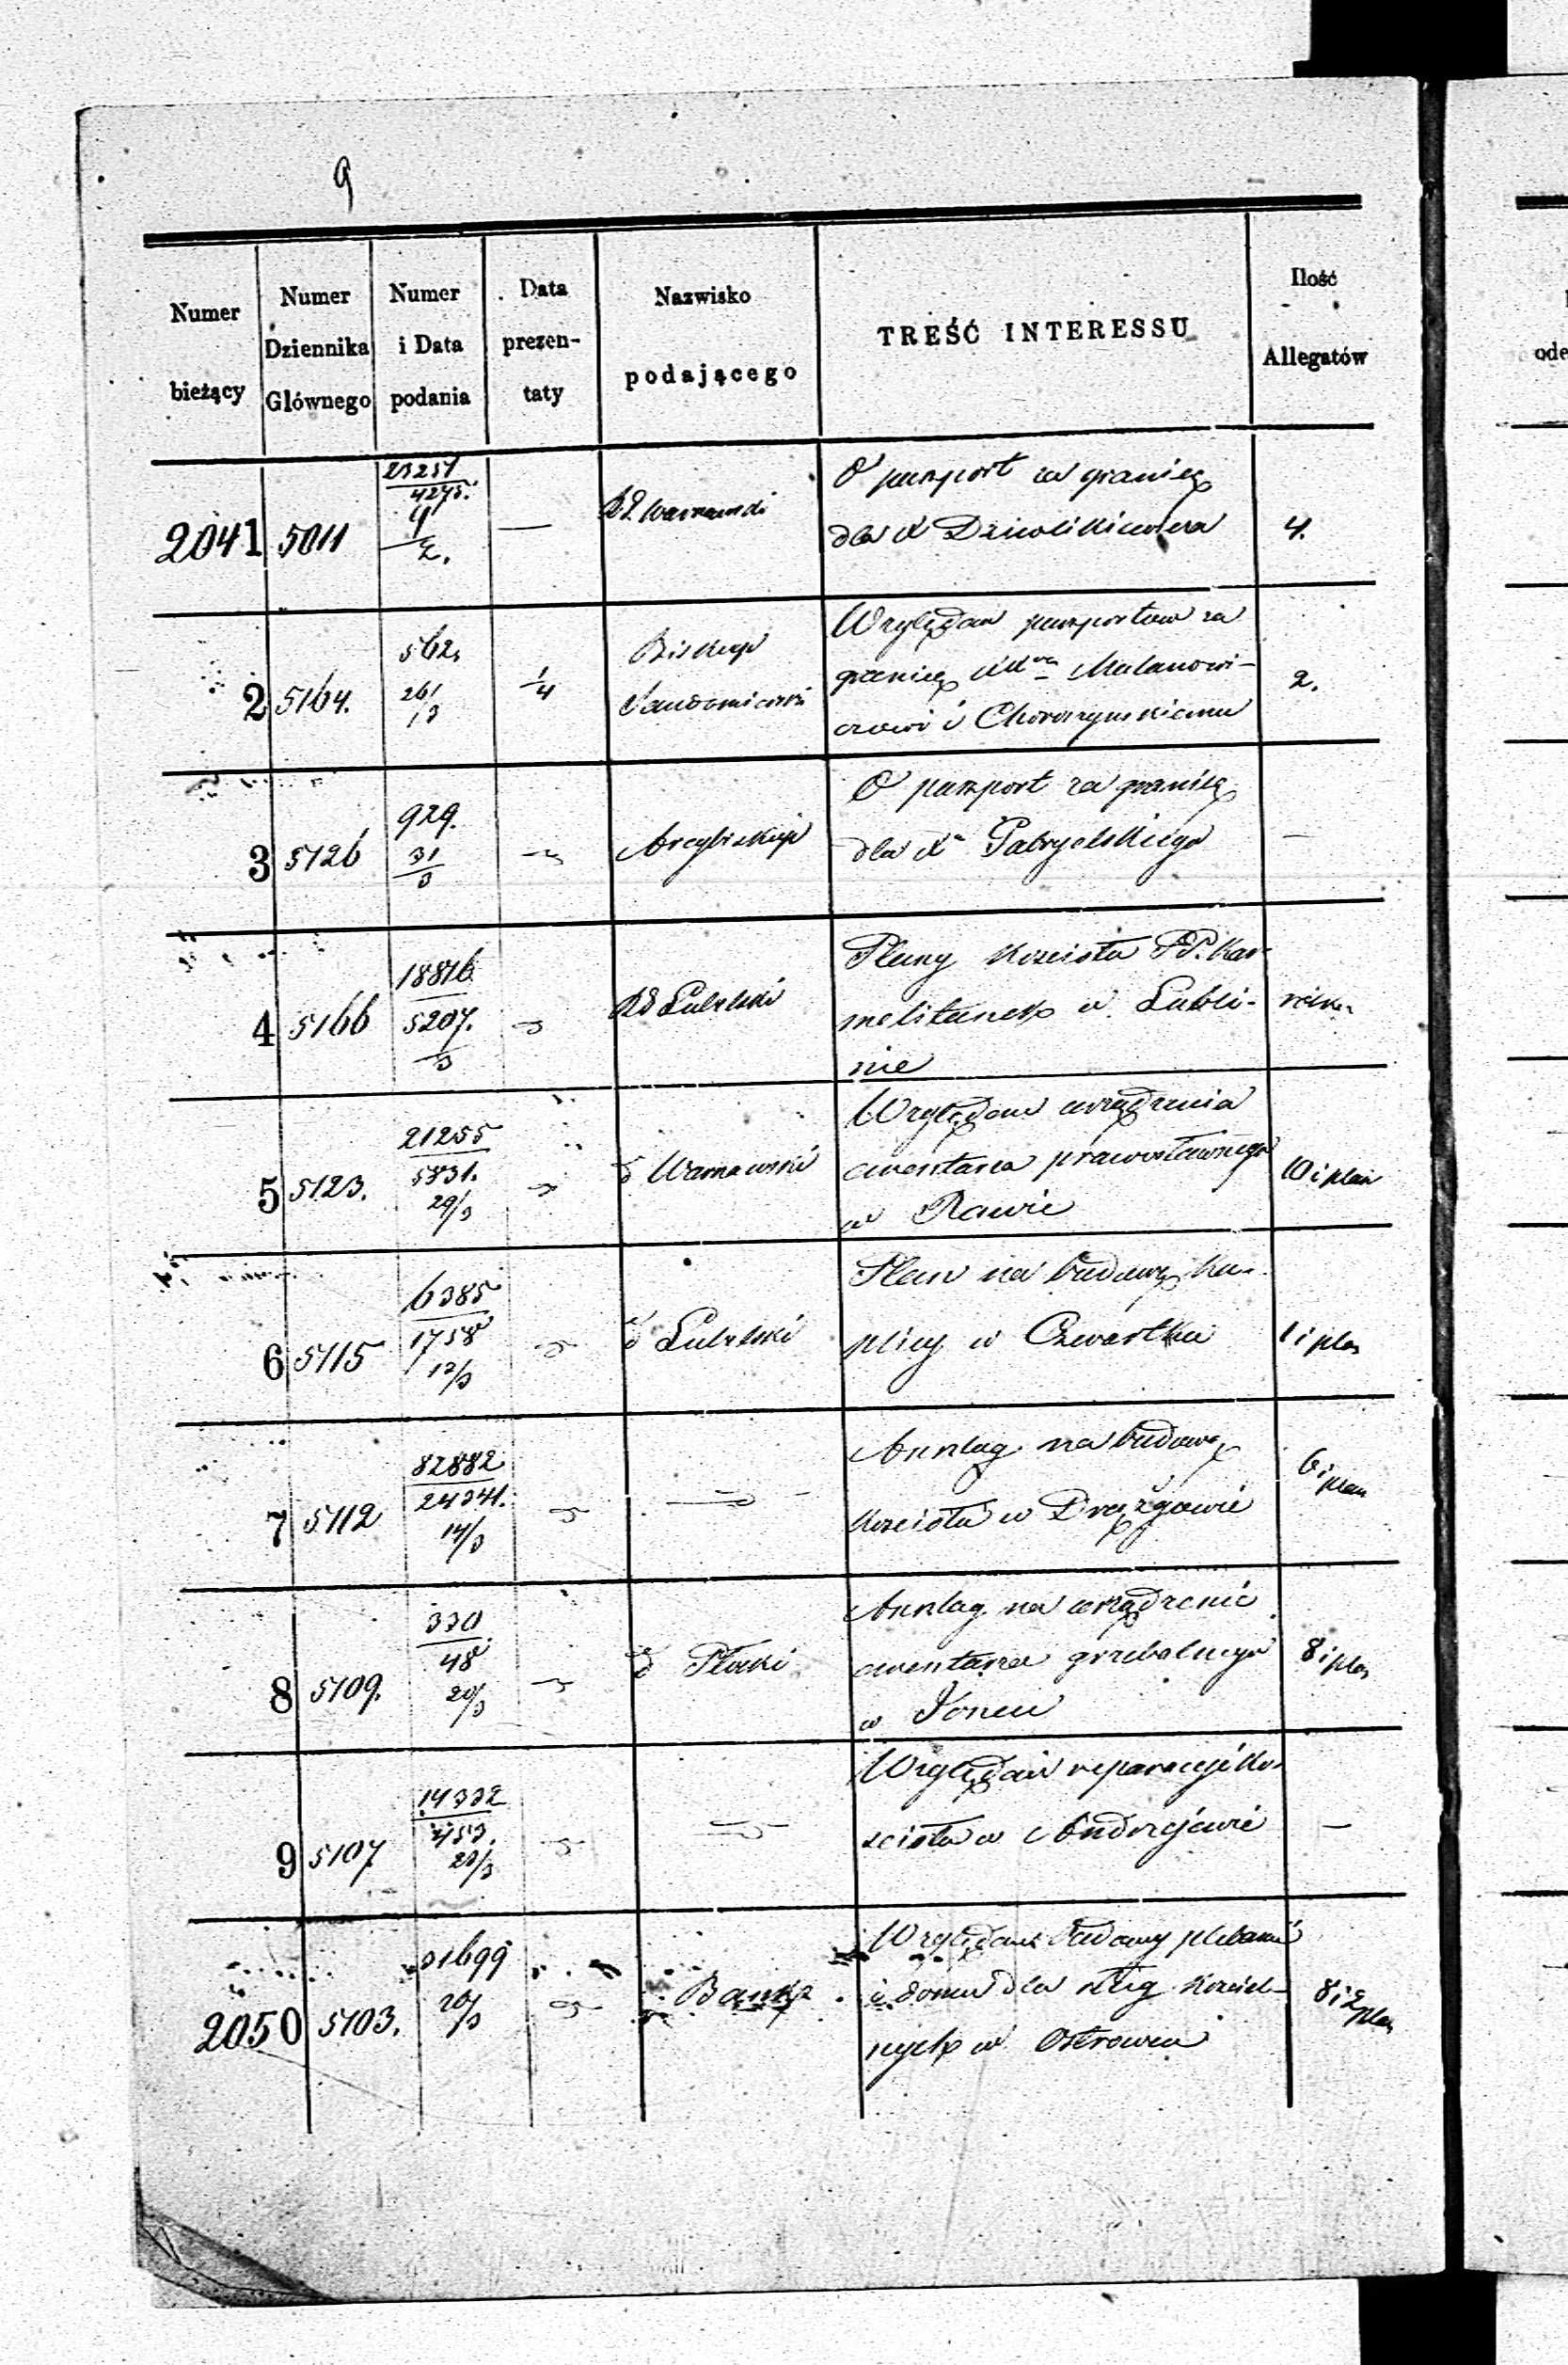 9
Numer bieżący
Numer Dziennika Głównego
Numer i Data podania
Data prezentaty
Nazwisko podającego
TREŚĆ INTERESSU
Ilość Allegatów
2041 5011
4275.
—
Warszawski
O paszport za granicę
dla X
4.
2 5164.
562.
26/3
1/4
Biskup
Sandomierski
Względem paszportów za
granicę
i Choroszyńskiemu
2.
3 5126
929.
31/3
Arcybiskup
O paszport za granicę
dla Xa Gabryelskiego
—
4 5166
18816
5207.
3
RG Lubelski
Plany Kościoła PP. Kar-
melitanek w Lubli-
nie
5 5123.
21255
5831.
29/3
d Warszawski
Względem urządzenia
cmentarza prawosławnego
w Rawie
10 i plan
6 5115
6385
1758
12/3
d Lubelski
Plan na budowę Ka-
plicy w Czwartku
1 i plan
7 5112
82882
24341.
14/3
Anszlag na budowę
Kościoła w Drążgowie
6 i plan
8 5109.
330
48
20/3
d Płocki
Anszlag na urządzenie
cmentarza grzebalnego
w Joncu
8 i plan
9 5107
14332
23/3
Względem reparacyi Ko-
ścioła w Andrzejewie
—
2050 5103.
31699
20/3
Bank
Względem budowy plebanii
i domu dla sług Kościel-
nych w Ostrowcu
8 i 2 plan